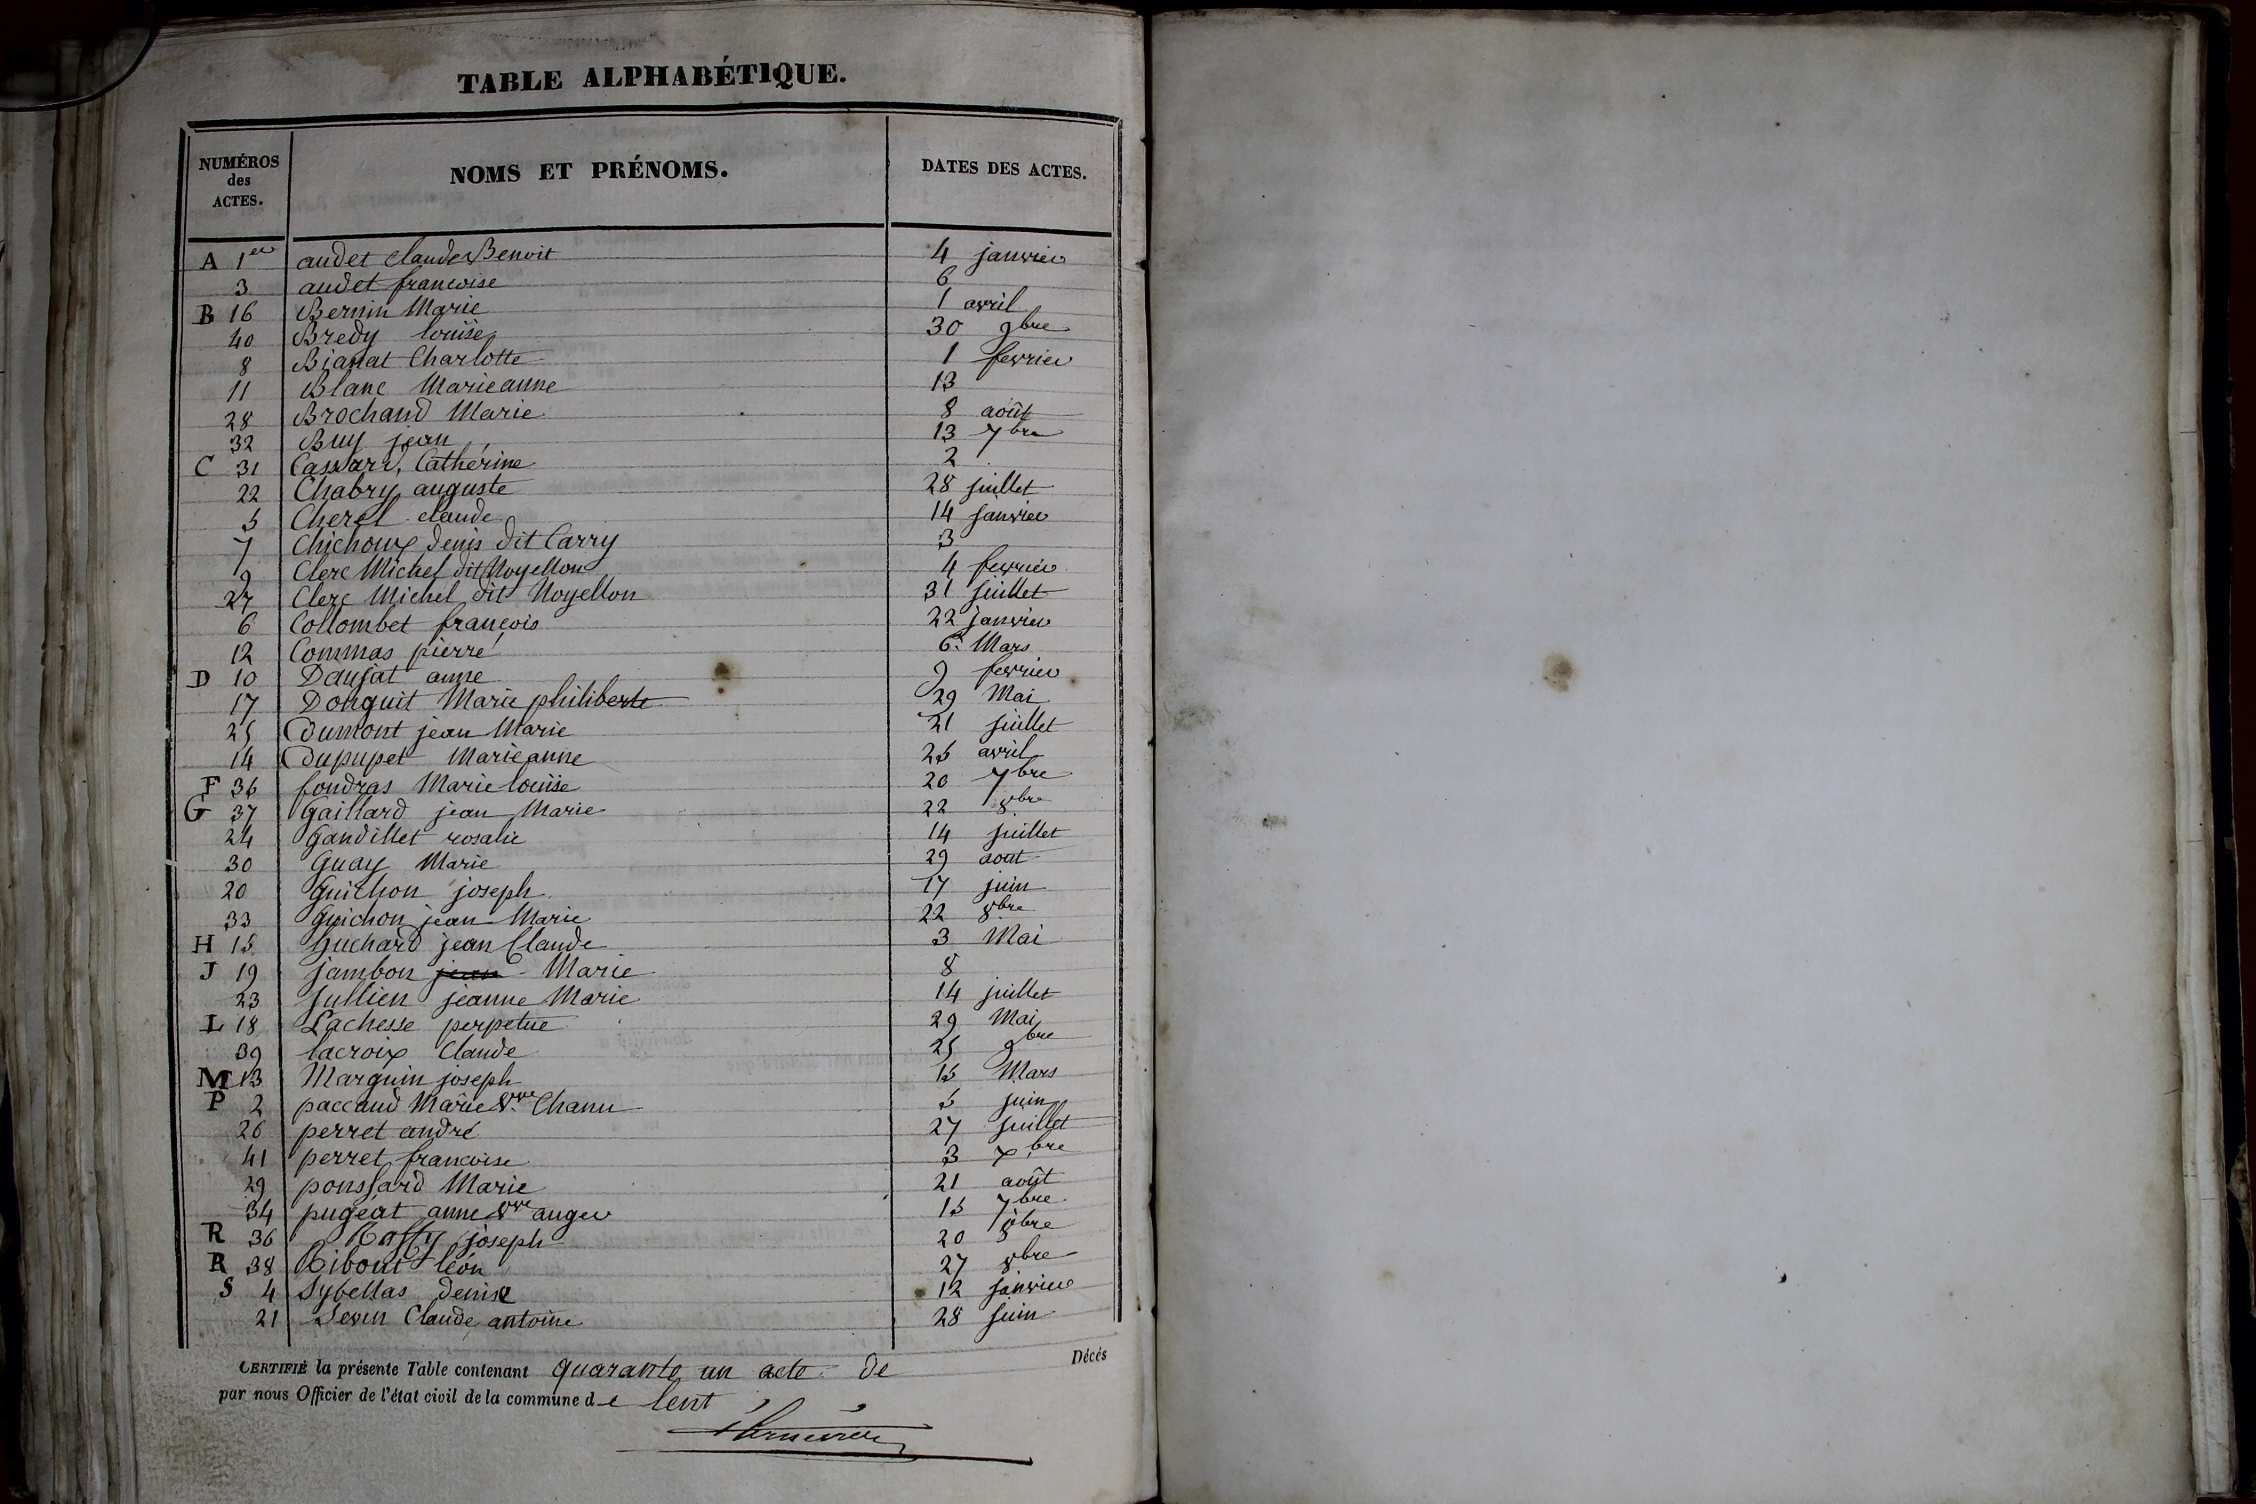 TABLE ALPHABÉTIQUE.
NUMÉROS des ACTES. NOMS ET PRÉNOMS. DATES DES ACTES.
A 1er audet Claude Benoit 4 janvier
3 audet francoise 6
B 16 Bernin Marie 1 avril
40 Bredy louise 30 9bre
8 Bianat Charlotte 1 fevrier
11 Blanc Marieanne 13
28 Brochand Marie 8 août
32 Buy jean 13 7bre
C 31 Cassard, Catherine 2
22 Chabry auguste 28 juillet
5 Cherel claude 14 janvier
7 Chichoux denis dit Carry 3
9 Clerc Michel dit Noyellon 4 fevrier
27 Clerc Michel dit Noyellon 31 juillet
6 Collombet françois 22 janvier
12 Commas pierre 6 Mars
D 10 Daujat anne 9 fevrier
17 Donguit Marie philiberte 29 Mai
25 Dumont jean Marie 21 juillet
14 Dupupet Marieanne 25 avril
F 36 fondras Marie louise 20 7bre
G 37 Gaillard jean Marie 22 8bre
24 Gandillet rosalie 14 juillet
30 Guay Marie 29 aout
20 Guichon joseph 17 juin
33 Guichon jean Marie 22 8bre
H 15 huchard jean Claude 3 Mai
J 19 jambon jean Marie 8
23 Jullien jeanne Marie 14 juillet
L 18 Lachesse perpetue 29 Mai
39 lacroix Claude 25 9bre
M 13 Marguin joseph 15 Mars
P 2 paccaud Marie Vve Chanu 5 juin
26 perret andré 27 juillet
41 perret francoise 3 xbre
29 poussard Marie 21 août
34 pugeat anne Vve auger 15 7bre
R 36 Raffy joseph 20 8bre
R 38 Ribout léon 27 8bre
S 4 Sybellas denise 12 janvier
21 Sevin Claude antoine 28 juin
CERTIFIÉ la présente Table contenant quarante un acte de Décés
par nous Officier de l'état civil de la commune de lent